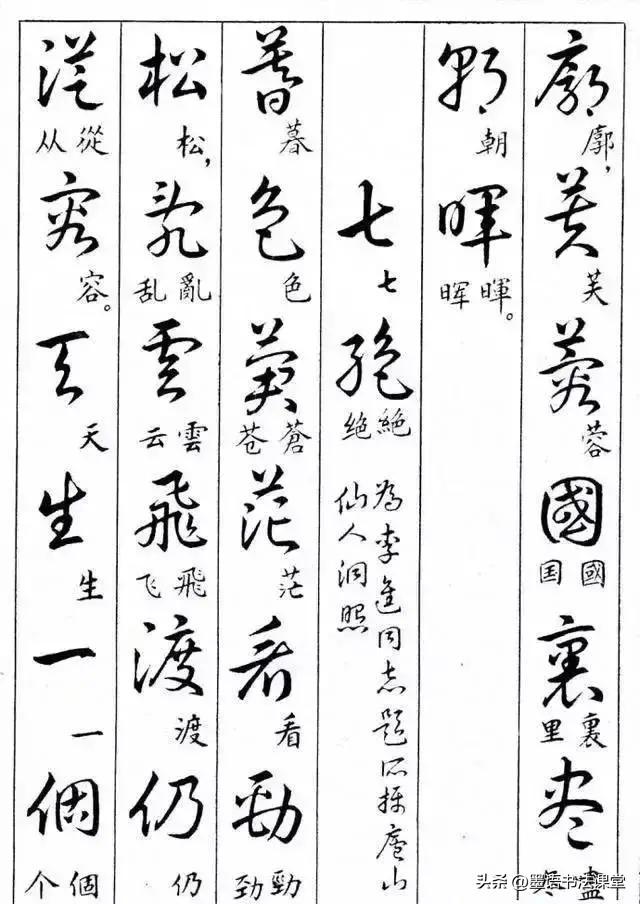 廓芙蓉國裏盡
廓， 芙 蓉 國国 裏里 盡
朝暉
朝 暉晖。
七絶
七 絶绝
為李進同志题所攝廬山
仙人洞照
暮色蒼茫看勁
暮 色 蒼苍 茫 看 勁劲
松亂雲飛渡仍
松， 亂乱 雲云 飛飞 渡 仍
從容天生一個
從从 容。 天 生 一 個个
头条 @墨语书法课堂